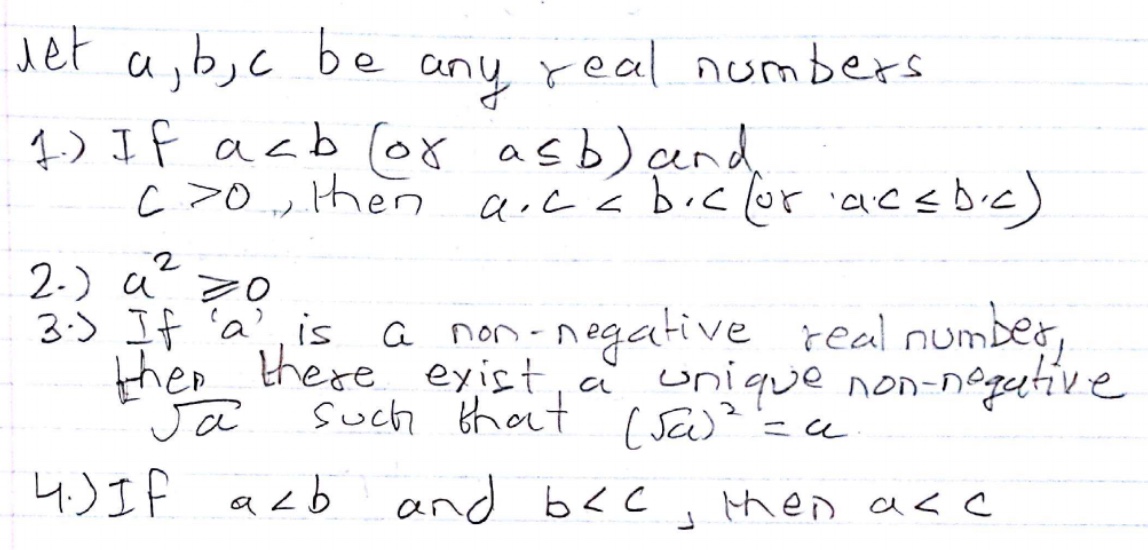 let a,b,c be any real numbers
1.) If a<b (or a≤b) and
c >0, then a.c < b.c (or a.c ≤ b.c)
2.) a² ≥0
3.) If 'a' is a non-negative real number,
then there exist a unique non-negative
√a such that (√a)² = a.
4.) If a<b and b<c, then a<c